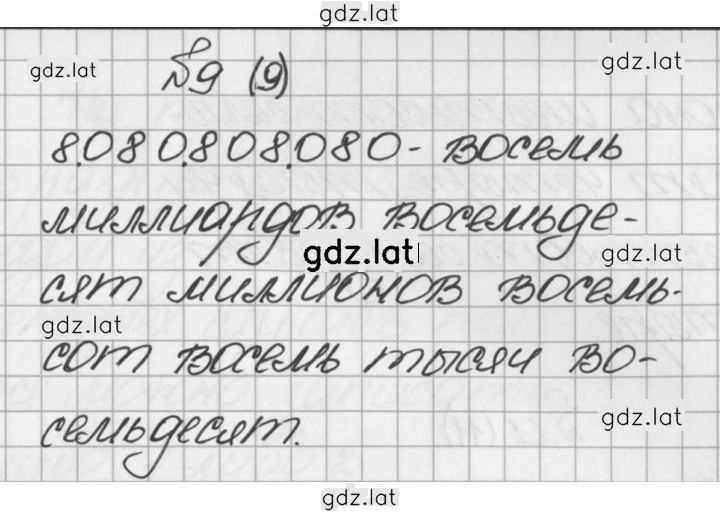 gdz.lat
gdz.lat
gdz.lat
№9 (9)
8.080.808.080- восемь
миллиардов восемьде-
gdz.lat
сят миллионов восемь-
gdz.lat
сот восемь тысяч во-
семьдесят.
gdz.lat
gdz.lat